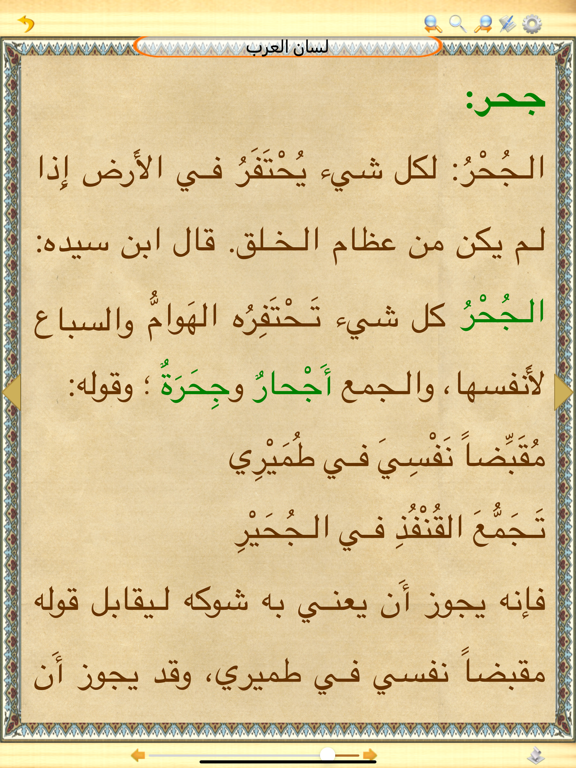 لسان العرب
جحر:
الجُحْرُ: لكل شيء يُحْتَفَرُ في الأَرض إِذا
لم يكن من عظام الخلق. قال ابن سيده:
الجُحْرُ كل شيء تَحْتَفِرُه الهَوامُّ والسباع
لأَنفسها، والجمع أَجْحارٌ وجِحَرَةٌ ؛ وقوله:
مُقَبِّضاً نَفْسِيَ في طُمَيْرِي
تَجَمُّعَ القُنْفُذِ في الجُحَيْرِ
فإنه يجوز أَن يعني به شوكه ليقابل قوله
مقبضاً نفسي في طميري، وقد يجوز أَن